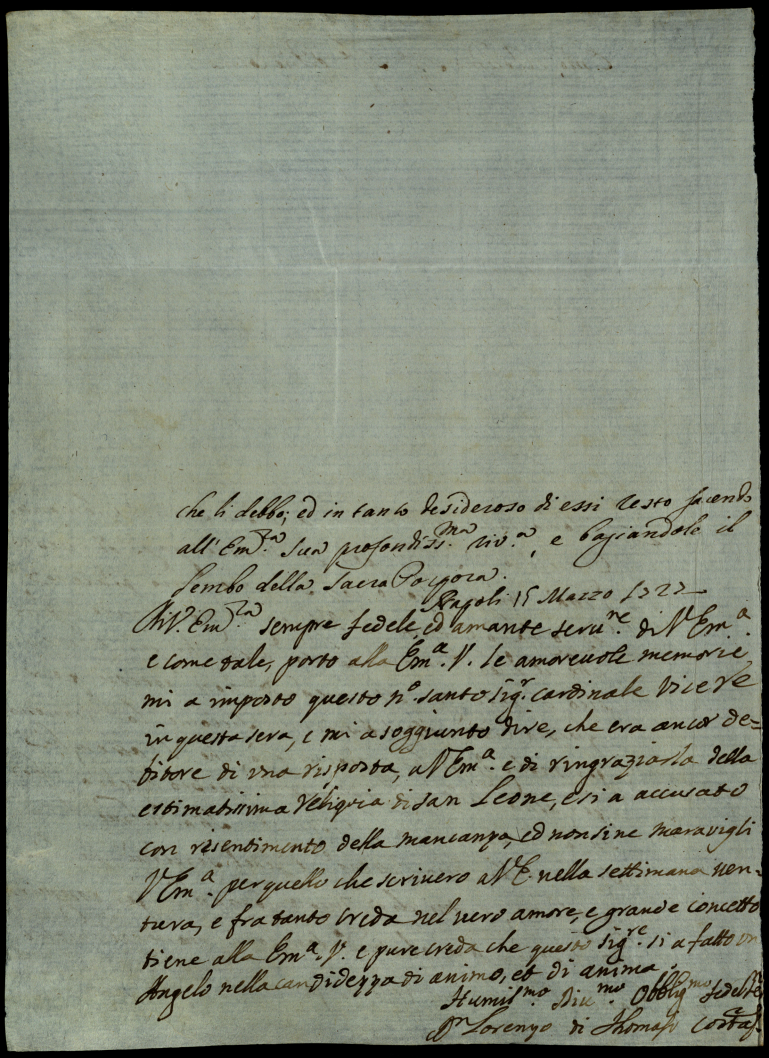 che li debbo; ed in tanto desideroso di essi resto facendo
all'Em.za Sua profondiss.ma riv.a, e baciandole il
lembo della Sacra Porpora.
Napoli 15 Marzo 1722
Di V. Em.za sempre fedele, ed amante seru.re di V Em.a
e come tale, porto alla Em.a V. le amorevole memorie,
mi a imposto questo n.o santo Sig.r cardinale Vice Re
in questa sera, e mi a soggiunto dire, che era ancor de=
bitore di una risposta, a V Em.a e di ringraziarla della
estimatissima reliquia di san Leone, e si a accusato
con risentimento della mancanza, ed non sine maravigli
V Em.a per quello che scrivero a V E. nella settimana ven=
tura, e fra tanto creda nel vero amore, e grande concetto
tiene alla Em.a V. e pure creda che questo Sig.re si a fatto un
Angelo nella candidezza di animo, et di anima
Humil.mo Diu.mo Obblig.mo
D.r Lorenzo di Thomasi